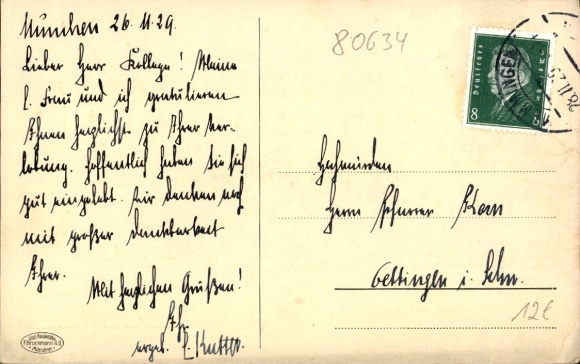 München 26.11.29.
Lieber Herr Kollege! Meine
l. Frau und ich gratulieren
Ihnen herzlichst zu Ihrer Ver-
lobung. Hoffentlich haben Sie sich
gut eingelebt. Wir denken noch
mit großer Dankbarkeit
Ihrer.
Mit herzlichen Grüßen!
Ihr
ergeb.
80634
Deutsches Reich
8 8
26.11.29
Hochwürden
Herrn Pfarrer
Oettingen i.
12€
F. Bruckmann A.G.
München